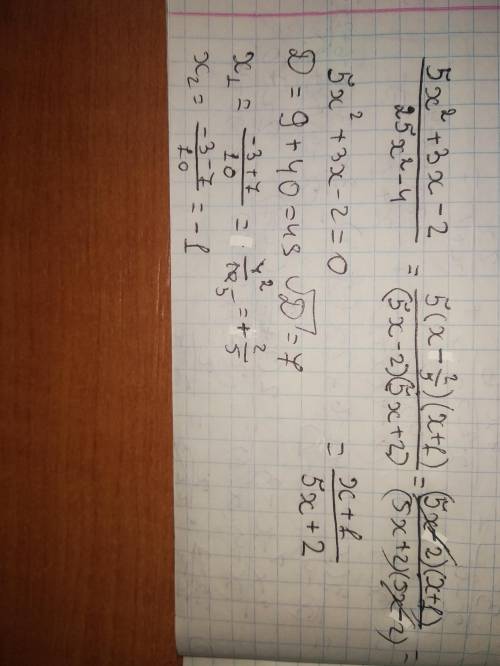 (5x² + 3x - 2)/(25x² - 4) = 5(x - 2/5)(x+1)/((5x-2)(5x+2)) = (5x-2)(x+1)/((5x+2)(5x-2)) =
5x² + 3x - 2 = 0 = (x+1)/(5x+2)
D = 9 + 40 = 49 √D = 7
x₁ = (-3+7)/10 = 4²/10₅ = + 2/5
x₂ = (-3-7)/10 = -1